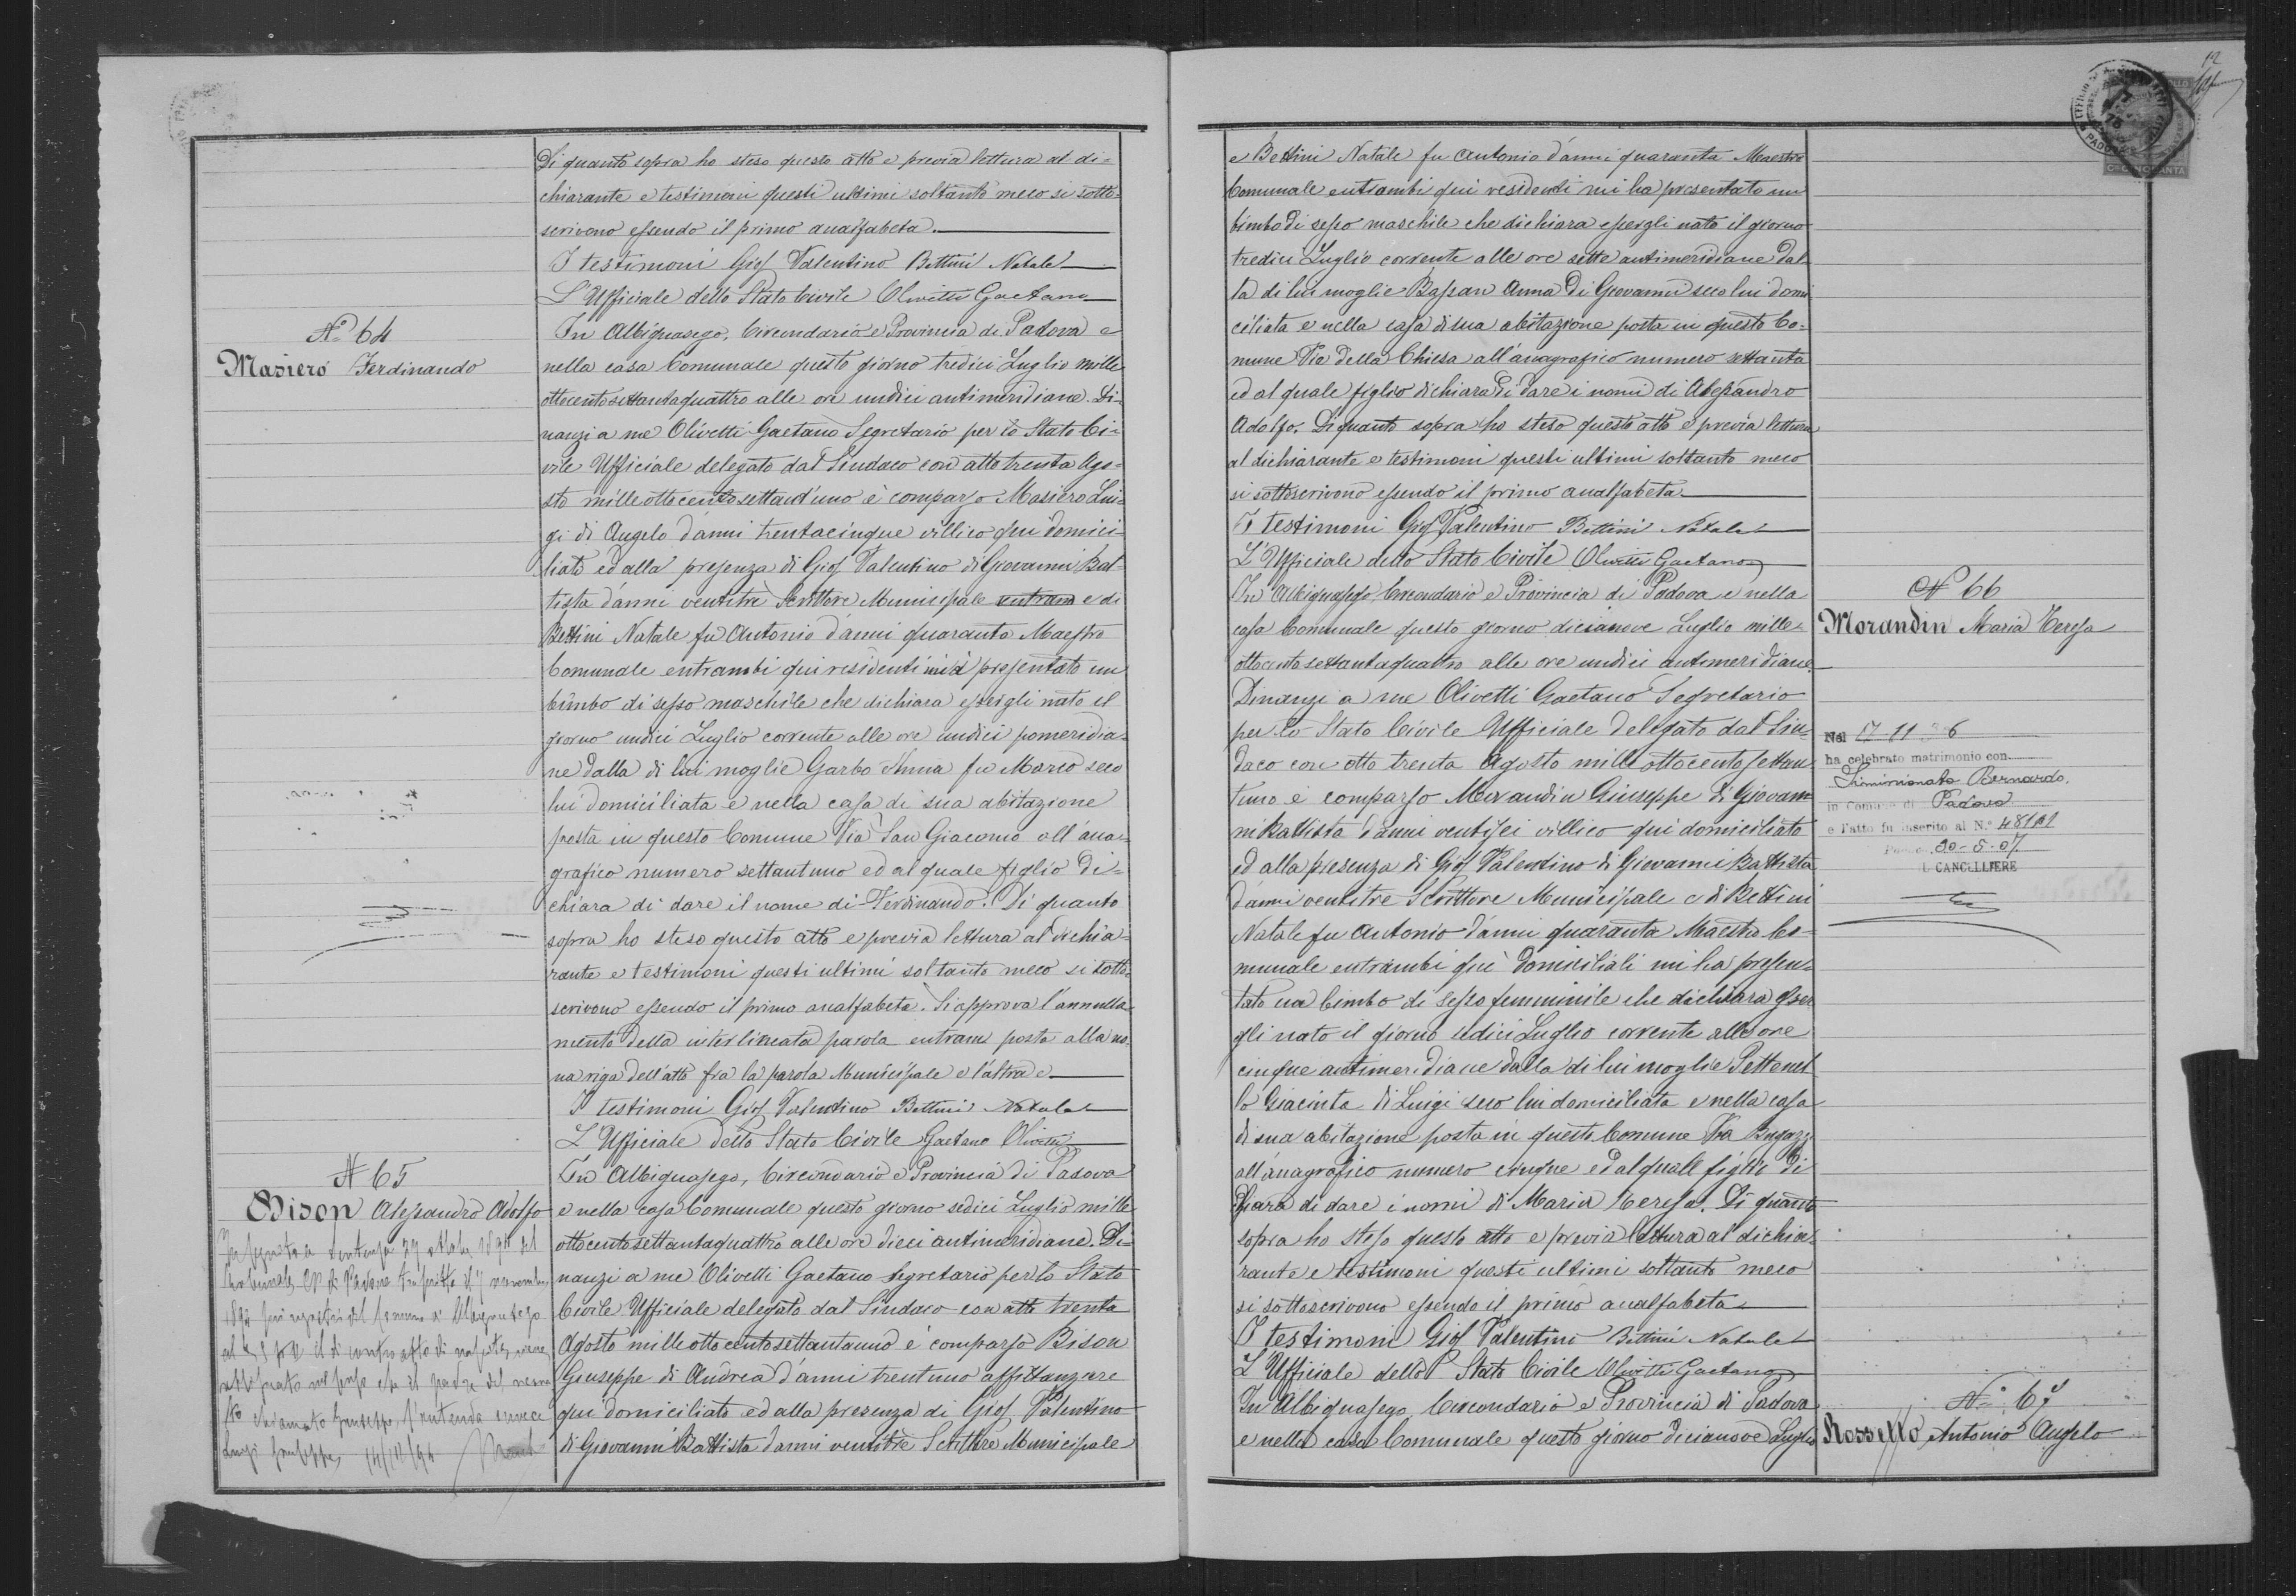 Di quanto sopra ho steso questo atto e previa lettura al di=
chiarante e testimoni questi ultimi soltanto meco si sotto=
scrivono essendo il primo analfabeta.
I testimoni Gios Valentino Bettini Natale
L'Ufficiale dello Stato Civile Olivetti Gaetano
N° 64
Masiero Ferdinando
In Albignasego, Circondario e Provincia di Padova e
nella casa Comunale questo giorno tredici Luglio mille
ottocentosettantaquattro alle ore undici antimeridiane. Di=
nanzi a me Olivetti Gaetano Segretario per lo Stato Ci=
vile Ufficiale delegato dal Sindaco con atto trenta Ago=
sto mille ottocento settant'uno è comparso Masiero Lui=
gi di Angelo d'anni trentacinque villico qui domici=
liato ed alla presenza di Gios Valentino di Giovanni Bat=
tista d'anni ventitrè Scrittore Municipale entram e di
Bettini Natale fu Antonio d'anni quaranta Maestro
Comunale entrambi qui residenti mi à presentato un
bimbo di sesso maschile che dichiara essergli nato il
giorno undici Luglio corrente alle ore undici pomeridia=
ne dalla di lui moglie Garbo Anna fu Marco seco
lui domiciliata e nella casa di sua abitazione
posta in questo Comune Via San Giacomo all'ana=
grafico numero settantuno ed al quale figlio di=
chiara di dare il nome di Ferdinando. Di quanto
sopra ho steso questo atto e previa lettura al dichia=
rante e testimoni questi ultimi soltanto meco si sotto=
scrivono essendo il primo analfabeta. Si approva l'annulla=
mento della interlineata parola entram posta alla no=
na riga dell'atto fra la parola Municipale e l'altra e
I testimoni Gios Valentino Bettini Natale
L'Ufficiale dello Stato Civile Gaetano Olivetti
N 65
Bison Alessandro Adolfo
In Albignasego, Circondario e Provincia di Padova
e nella casa Comunale questo giorno sedici Luglio mille
ottocentosettantaquattro alle ore dieci antimeridiane. Di=
nanzi a me Olivetti Gaetano Segretario per lo Stato
Civile Ufficiale delegato dal Sindaco con atto trenta
Agosto mille ottocentosettantauno è comparso Bison
Giuseppe di Andrea d'anni trentuno affittanziere
qui domiciliato ed alla presenza di Gios Valentino
di Giovanni Battista d'anni ventitrè Scrittore Municipale
sentenza 29 1894 del
Tribunale di Padova trascritta il 7 novembre
1894 nei registri del Comune di Albignasego
il di contro atto di nascita viene
rettificato nel senso che il padre del neona
to chiamato Giuseppe, s'intenda invece
Luigi Giuseppe, 14/12/94
e Bettini Natale fu Antonio d'anni quaranta Maestro
Comunale entrambi qui residenti mi ha presentato un
bimbo di sesso maschile che dichiara essergli nato il giorno
tredici Luglio corrente alle ore sette antimeridiane dal=
la di lui moglie Bassan Anna di Giovanni seco lui domi
ciliata e nella casa di sua abitazione posta in questo Co=
mune Via della Chiesa all'anagrafico numero settanta
ed al quale figlio dichiara di dare i nomi di Alessandro
Adolfo. Di quanto sopra ho steso questo atto e previa lettura
al dichiarante e testimoni questi ultimi soltanto meco
si sottoscrivono essendo il primo analfabeta
I testimoni Gios Valentino Bettini Natale
L'Ufficiale dello Stato Civile Olivetti Gaetano
N 66
Morandin Maria Teresa
In Albignasego, Circondario e Provincia di Padova e nella
casa Comunale questo giorno diciannove Luglio mille=
ottocentosettantaquattro alle ore undici antimeridiane.
Dinanzi a me Olivetti Gaetano Segretario
per lo Stato Civile Ufficiale delegato dal Sin=
daco con atto trenta Agosto mille ottocento settan
tuno è comparso Morandin Giuseppe di Giovan
ni Battista d'anni ventisei villico qui domiciliato
ed alla presenza di Gios Valentino di Giovanni Battista
d'anni ventitre Scrittore Municipale e di Bettini
Natale fu Antonio d'anni quaranta Maestro Co=
munale entrambi qui domiciliati mi ha presen=
tato una bimba di sesso femminile che dichiara esser
gli nato il giorno sedici Luglio corrente alle ore
cinque antimeridiane dalla di lui moglie Settenel
lo Giacinta di Luigi seco lui domiciliata e nella casa
di sua abitazione posta in questo Comune Via
all'anagrafico numero cinque ed al quale figlio di
chiara di dare i nomi di Maria Teresa. Di quanto
sopra ho steso questo atto e previa lettura al dichia=
rante e testimoni questi ultimi soltanto meco
si sottoscrivono essendo il primo analfabeta
I testimoni Gios Valentino Bettini Natale
L'Ufficiale dello Stato Civile Olivetti Gaetano
Nel 17-11
ha celebrato matrimonio con
Simionato Bernardo
in Comune di Padova
e l'atto fu inserito al N.°
IL CANCELLIERE
N° 67
Rossetto Antonio Angelo
In Albignasego, Circondario e Provincia di Padova
e nella casa Comunale questo giorno diciannove Luglio